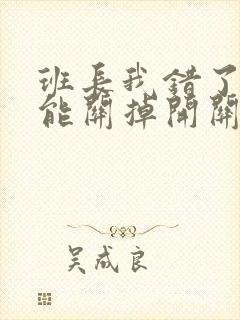 班長我錯了
能關掉開關
吴成良